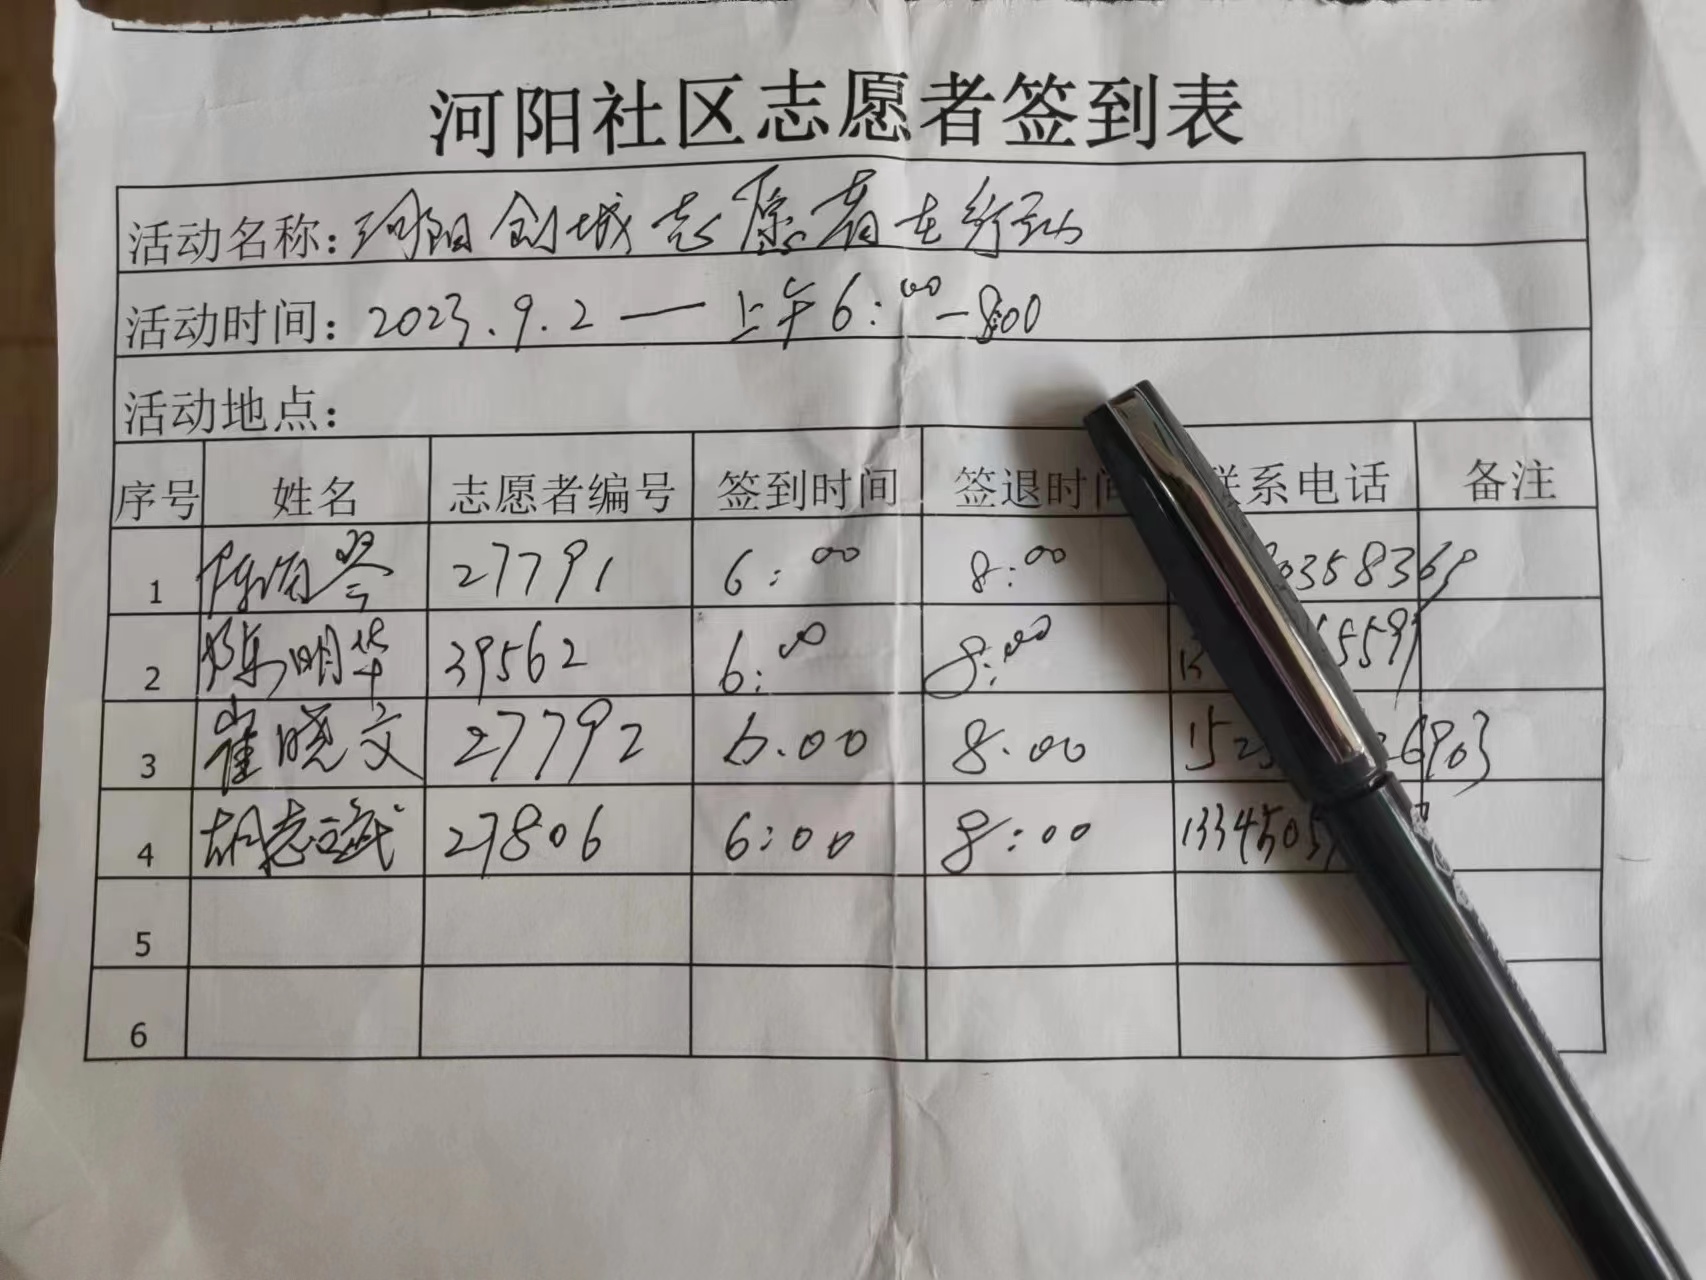 河阳社区志愿者签到表
活动名称：河阳创城志愿者在行动
活动时间：2023.9.2 — 上午6:00-8:00
活动地点：
序号 姓名 志愿者编号 签到时间 签退时间 联系电话 备注
1 27791 6:00 8:00
2 陈明华 39562 6:00 8:00
3 崔晓文 27792 6.00 8.00
4 胡志斌 27806 6:00 8:00
5
6